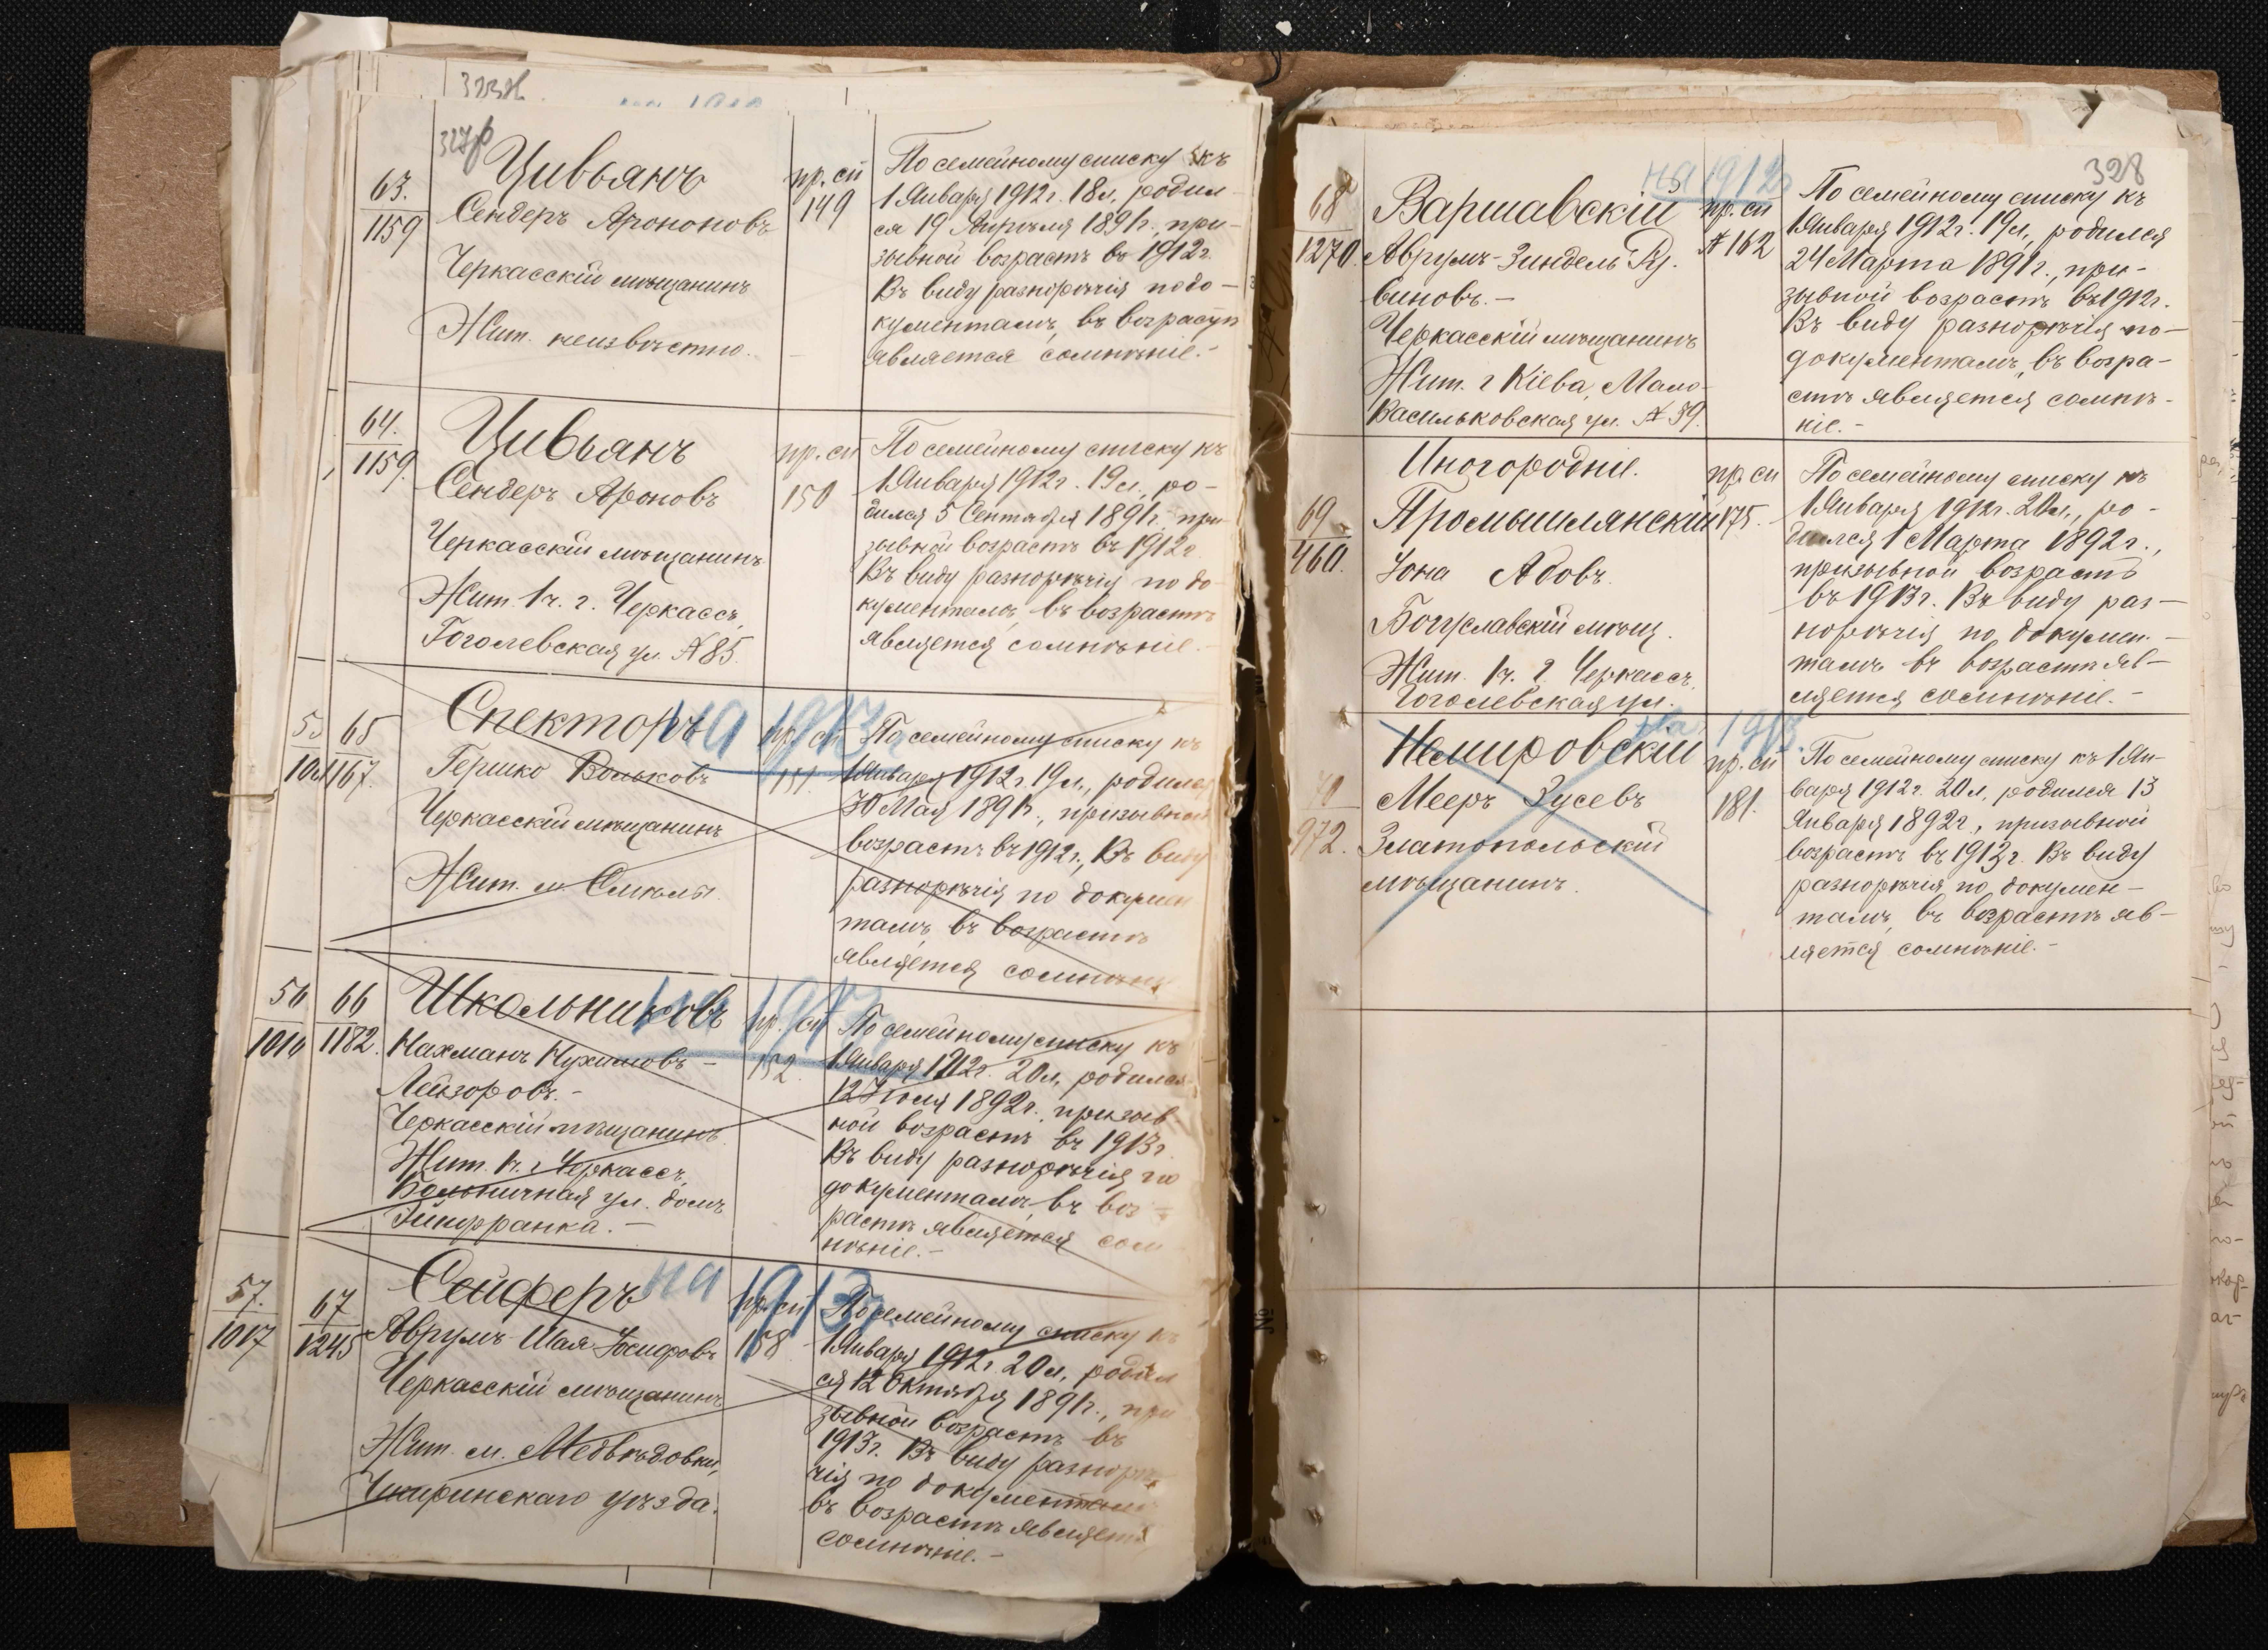 327об
63.
1159
Цивьянъ
Сендеръ Арононовъ
Черкасскій мѣщанинъ
Жит. неизвѣстно.
пр. сп
149
По семейному списку къ
1 Января 1912 г. 18 л., родил-
ся 19 Апрѣля 1891 г., при-
зывной возрастъ въ 1912 г.
Въ виду разнорѣчія по до-
кументамъ, въ возрастѣ
является сомнѣніе.-
64.
1159.
Цивьянъ
Сендеръ Ароновъ
Черкасскій мѣщанинъ
Жит. 1 ч. г. Черкассъ,
Гоголевская ул. № 85.
пр. сп
150
По семейному списку къ
1 Января 1912 г. 19 л., ро-
дился 5 Сентября 1891 г., при-
зывной возрастъ въ 1912 г.
Въ виду разнорѣчія по до-
кументамъ, въ возрастѣ
является сомнѣніе.-
55 65
1167.
Спекторъ
на 1913 г.
Гершко Вольковъ
Черкасскій мѣщанинъ
Жит. м. Смѣлы.
пр. сп
151.
По семейному списку къ
1 Января 1912 г. 19 л., родился
30 Мая 1891 г., призывной
возрастъ въ 1912 г., Въ виду
разнорѣчія по докумен
тамъ, въ возрастѣ
является сомнѣніе
56 66
1016 1182.
Школьниковъ
на 1913 г.
Нахманъ Нухимовъ-
Лейзоровъ.-
Черкасскій мѣщанинъ
Жит. 1 ч. г. Черкассъ,
Больничная ул. домъ
Зинфранка.-
пр. сп
152.
По семейному списку къ
1 Января 1912 г. 20 л., родился
12 Іюля 1892 г., призыв
ной возрастъ въ 1913 г.
Въ виду разнорѣчія по
документамъ, въ воз-
растѣ является сом
нѣніе.-
57. 67
1017 1245
Сейферъ
на 1913 г.
Аврумъ-Шая Юсифовъ
Черкасскій мѣщанинъ
Жит. м. Медвѣдовки,
Чигиринскаго уѣзда.
пр. сп
158
По семейному списку къ
1 Января 1912 г. 20 л., родил
ся 12 Октября 1891 г., при
зывной возрастъ въ
1913 г. Въ виду разнорѣ
чія по документамъ
въ возрастѣ является
сомнѣніе.-
328
на 1912 г
68
1270.
Варшавскій
Аврумъ-Зиндель Ру-
виновъ.-
Черкасскій мѣщанинъ
Жит. г Кіева, Мало-
Васильковская ул. № 59.
пр. сп
№ 162
По семейному списку къ
1 Января 1912 г. 19 л., родился
24 Марта 1891 г., при-
зывной возрастъ въ 1912 г.
Въ виду разнорѣчія по-
документамъ, въ возра-
стѣ является сомнѣ-
ніе.-
Иногородніе.
69
460.
Промышлянскій
Іона Абовъ
Богуславскій мѣщ.
Жит. 1 ч. г. Черкассъ,
Гоголевская ул.
пр. сп
175.
По семейному списку къ
1 Января 1912 г. 20 л., ро-
дился 1 Марта 1892 г.,
призывной возрастъ
въ 1913 г. Въ виду раз-
норѣчія по докумен-
тамъ въ возрастѣ яв-
ляется сомнѣніе.-
на 1913
70
972.
Немировскій
Мееръ Зусевъ
Златопольскій
мѣщанинъ.
пр. сп
181.
По семейному списку къ 1 Ян-
варя 1912 г. 20 л., родился 13
Января 1892 г., призывной
возрастъ въ 1913 г. Въ виду
разнорѣчія по докумен-
тамъ, въ возрастѣ яв-
ляется сомнѣніе.-